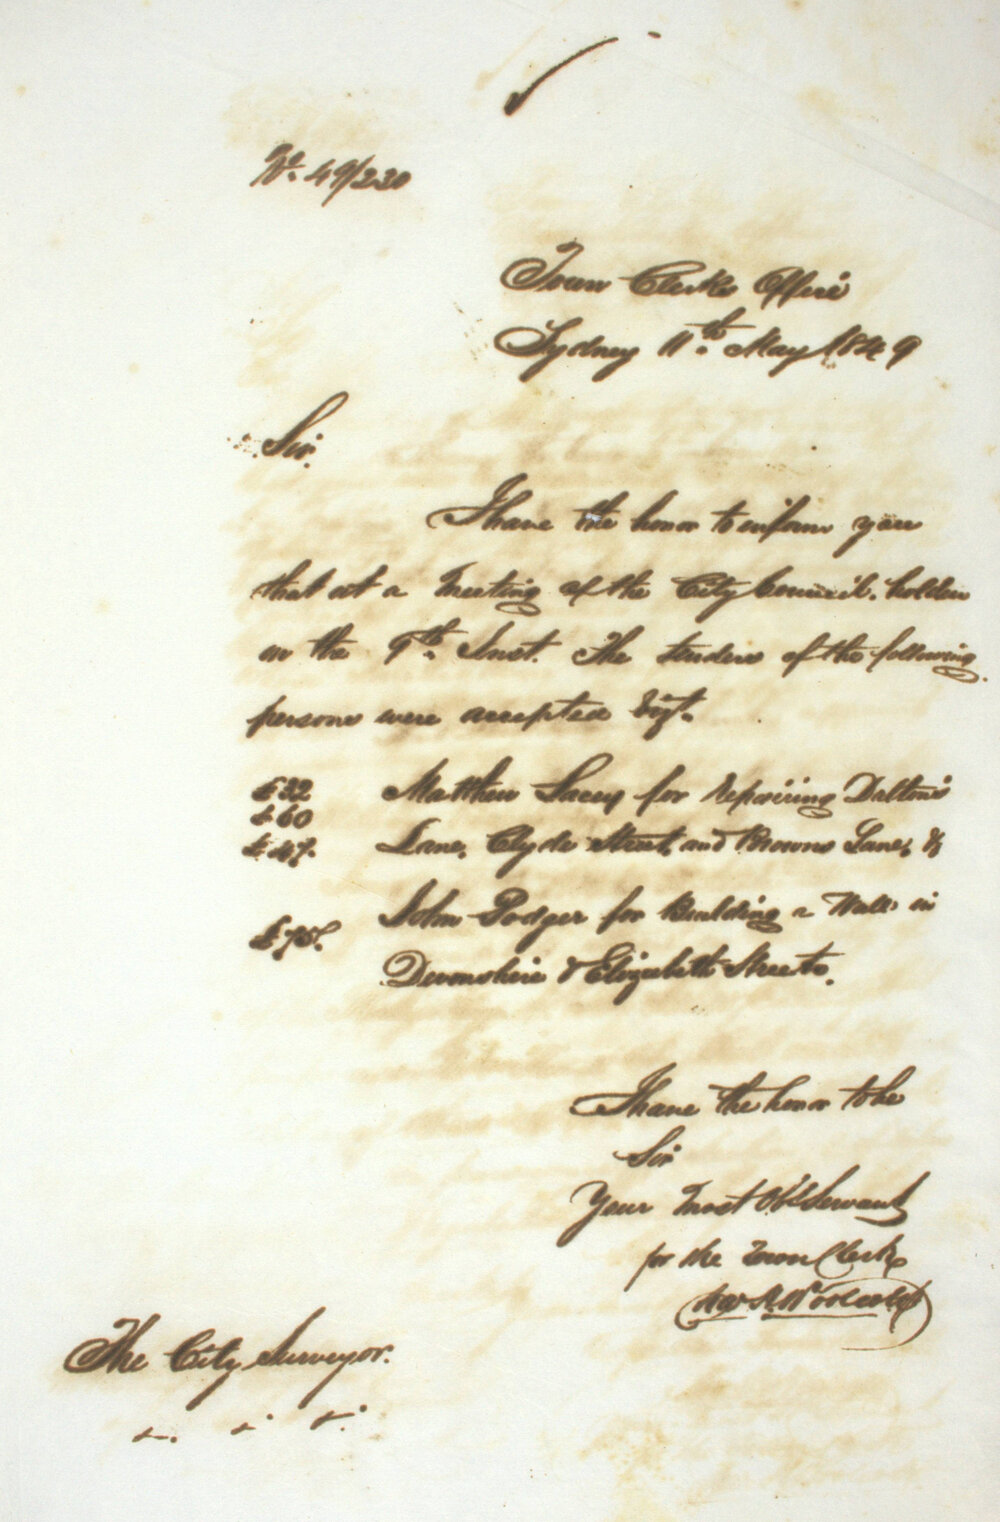 No. 49/230
Town Clerks Office
Sydney 11th. May 1849
Sir.
I have the honor to inform you
that at a Meeting of the City Council. holden
on the 9th. Inst. The tenders of the following
persons were accepted Vizt.
£32 Matthew Lacey for Repairing Dalton's
£60
£47. Lane, Clyde Street, and Browns Lane, &
£75. John Podger for Building a Wall in
Devonshire & Elizabeth Streets.
I have the honor to be
Sir
Your Most Obt Servant
for the Town Clerk
The City Surveyor.